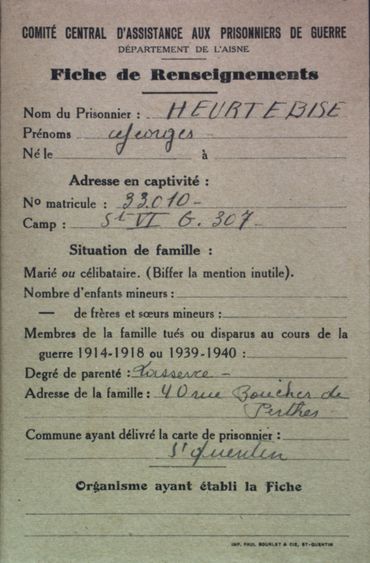 COMITÉ CENTRAL D'ASSISTANCE AUX PRISONNIERS DE GUERRE
DÉPARTEMENT DE L'AISNE
Fiche de Renseignements
Nom du Prisonnier : HEURTEBISE
Prénoms Georges
Né le à
Adresse en captivité :
No matricule : 33.010
Camp : St VI G. 307
Situation de famille :
Marié ou célibataire. (Biffer la mention inutile).
Nombre d'enfants mineurs :
— de frères et sœurs mineurs :
Membres de la famille tués ou disparus au cours de la
guerre 1914-1918 ou 1939-1940 :
Degré de parenté :
Adresse de la famille : 40 rue Boucher de
Perthes
Commune ayant délivré la carte de prisonnier :
St Quentin
Organisme ayant établi la Fiche
IMP. PAUL BOURLET & CIE, ST-QUENTIN